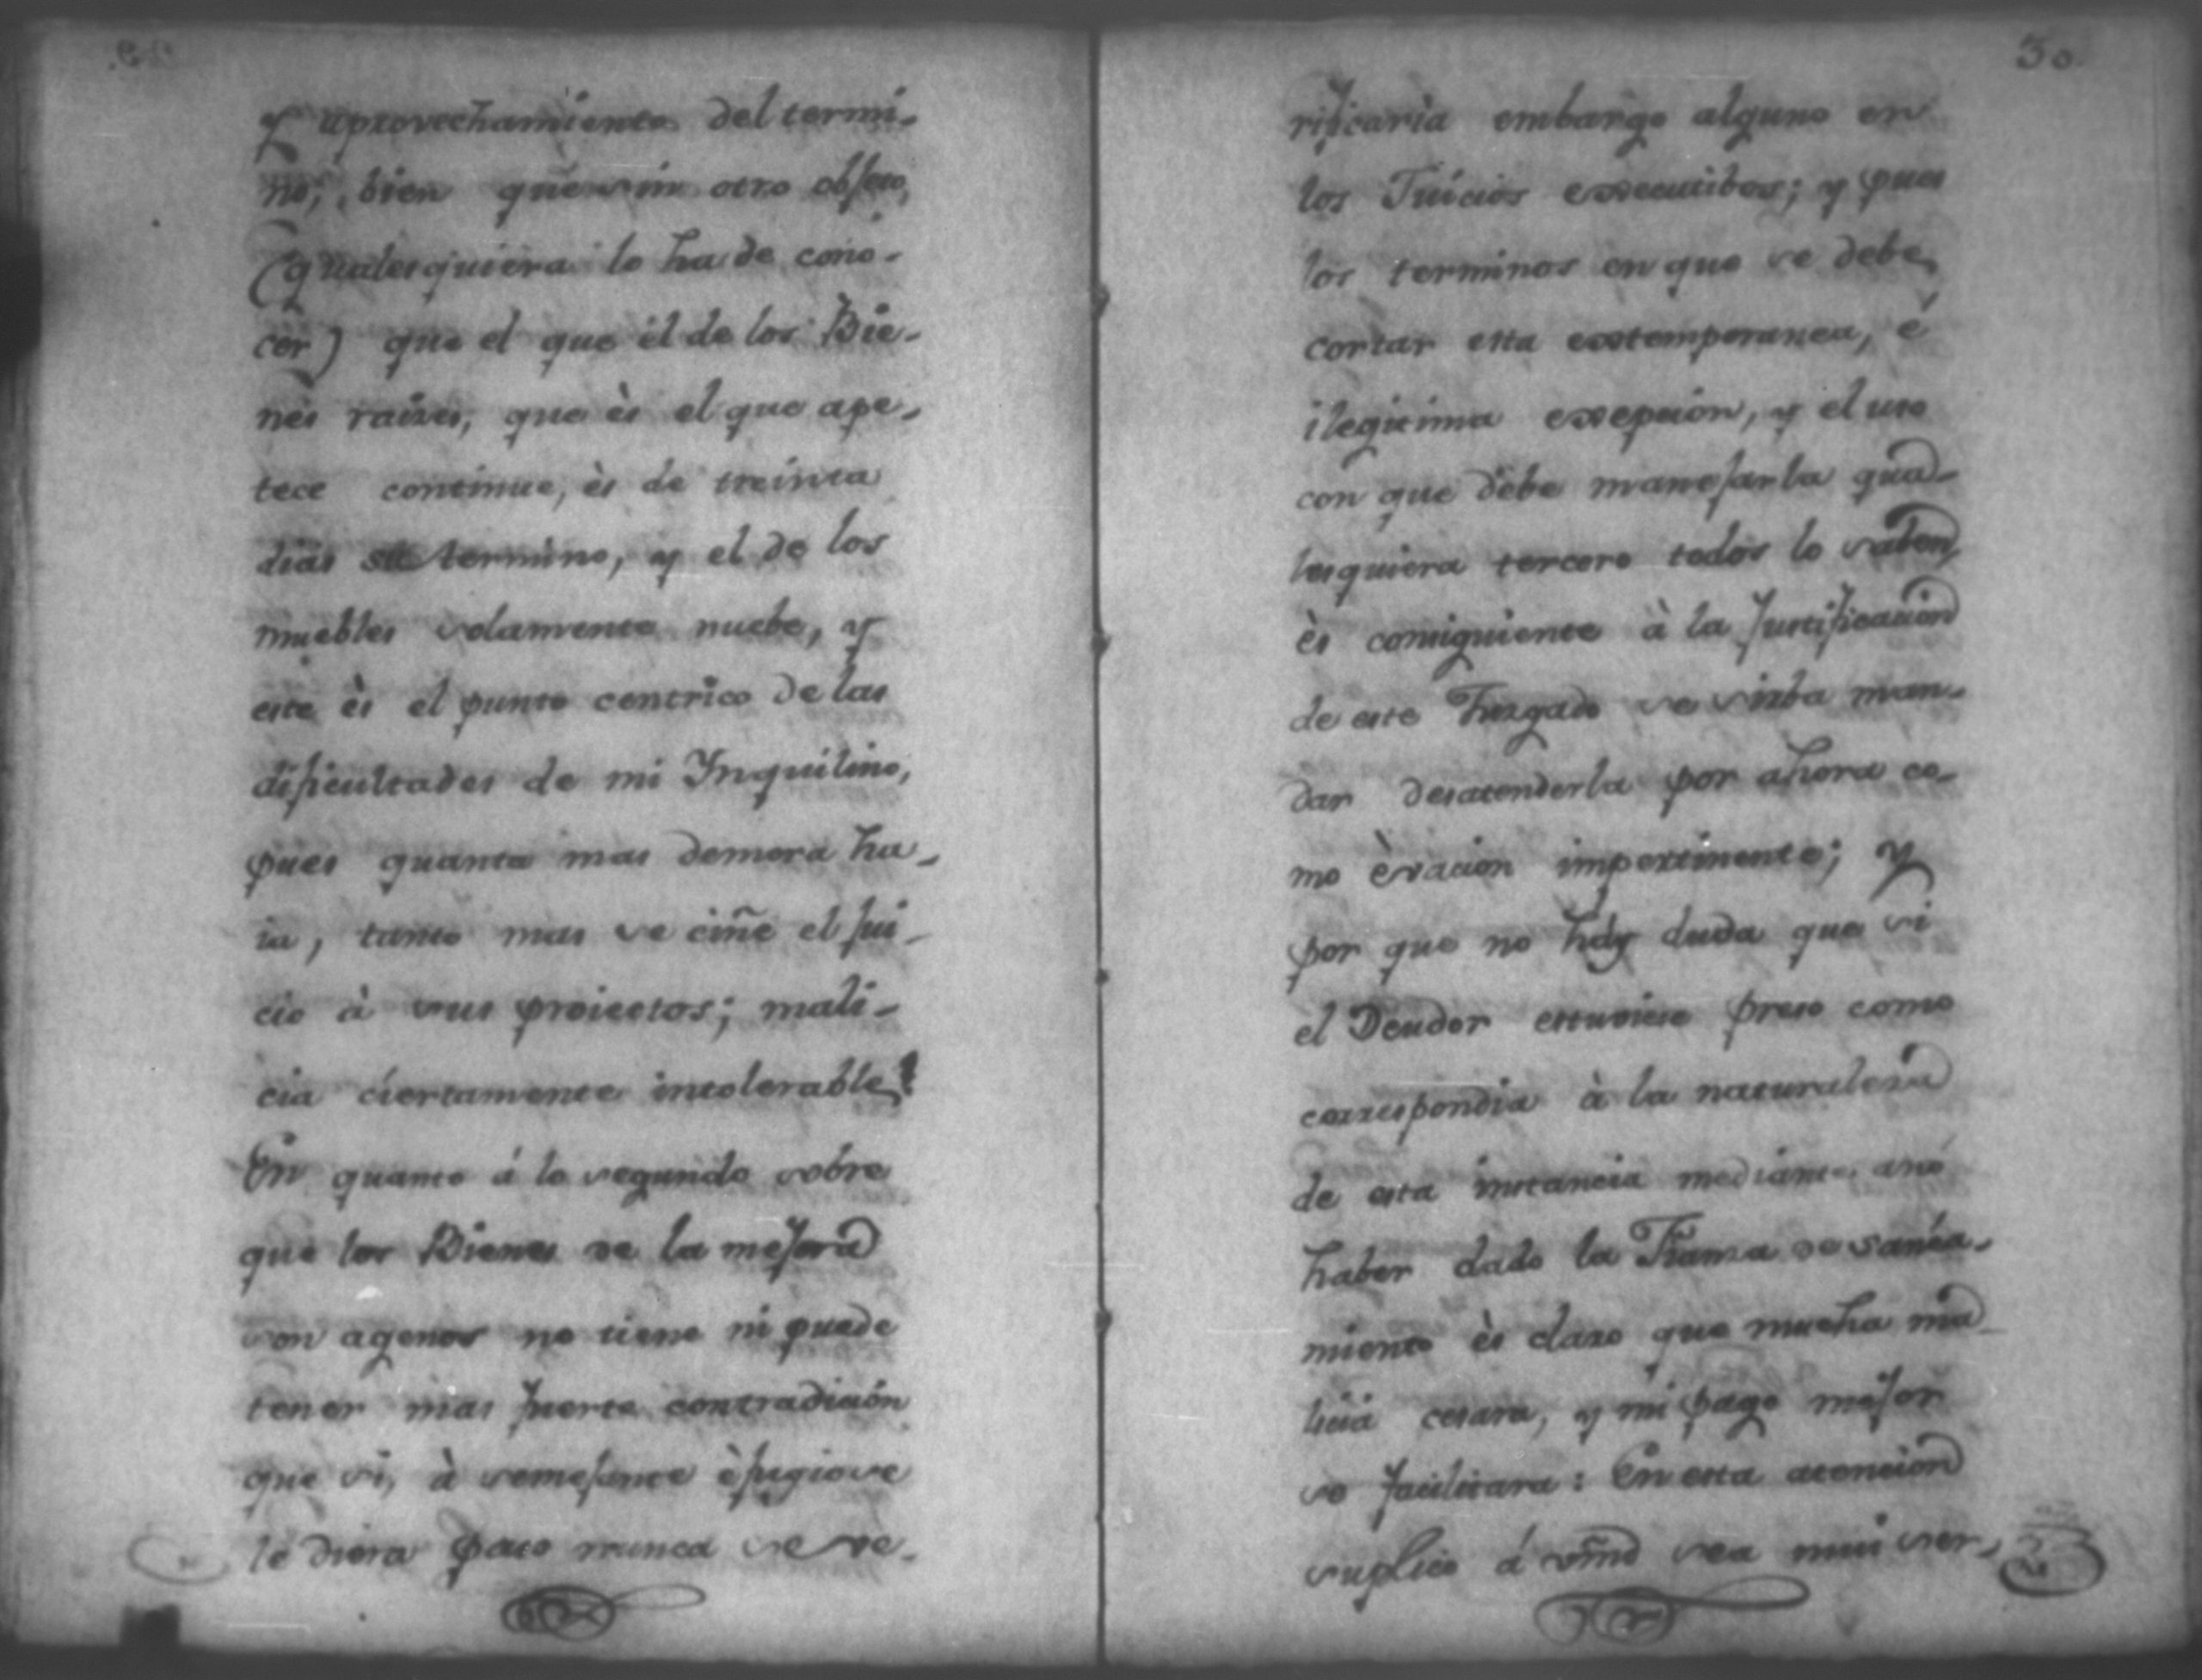 y aprovechamiento del termi-
no; bien que sin otro objeto,
(qualesquiera lo ha de cono-
cer) que el que él de los Bie-
nes raizes, que ès el que ape-
tece continue, ès de treinta
dias su termino, y el de los
muebles solamente nuebe, y
este ès el punto centrico de las
dificultades de mi Ynquilino,
pues quanta mas demora ha-
ia, tanto mas se ciñe el jui-
cio à sus proiectos; mali-
cia ciertamente intolerable!
En quanto á lo segundo sobre
que los Bienes de la mejora
son agenos no tiene ni puede
tener mas fuerte contradicion
que si, à semejante èfugio se
le diera paso nunca se ve-
30
rificaria embargo alguno en
los Juicios executibos; y pues
los terminos en que se debe
cortar esta extemporanea, é
ilegitima exepcion, y el uso
con que debe manejarla qua-
lesquiera tercero todos lo saben,
ès consiguiente à la Justificacion
de este Juzgado se sirba man-
dar desatenderla por ahora co-
mo èvacion impertinente; y
por que no hay duda que si
el Deudor estuviese preso como
correspondia à la naturaleza
de esta instancia mediante ano
haber dado la Fianza de sanea-
miento ès claro que mucha ma
licia cesara, y mi pago mejor
se facilitara: En esta atencion
suplico á vmd sea mui ser-